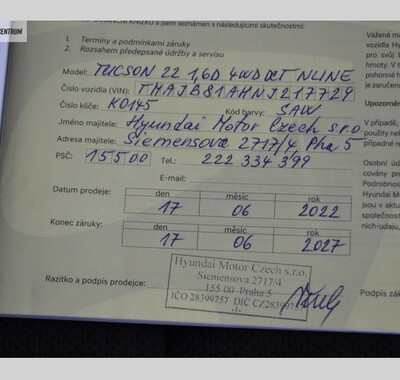 CENTRUM
a jsem seznámen s následujícími skutečnostmi:
1. Termíny a podmínkami záruky
2. Rozsahem předepsané údržby a servisu
Model: TUCSON 22 1,6D 4WD DCT NLINE
Číslo vozidla (VIN): TMAJB81AHNJ217729
Číslo klíče: K0145 Kód barvy: SAW
Jméno majitele: Hyundai Motor Czech s.r.o.
Adresa majitele: Siemensova 2717/4, Pha 5
PSČ: 155 00 Tel.: 222 334 399
E-mail:
Datum prodeje: den měsíc rok
17 06 2022
Konec záruky: den měsíc rok
17 06 2027
Hyundai Motor Czech s.r.o.
Siemensova 2717/4
155 00 Praha 5
IČO 28399757 DIČ CZ28399757
-1-
Razítko a podpis prodejce:
Vážená
vozidla Hy
pro svůj
hmoty. V t
pohonné h
je zaručena
Upozorně
V případě,
použity nek
případné re
Osobní úd
covány pro
Podrobnos
Hyundai M
jsou v aktu
společnost
ních-udaju,
Podpis zák